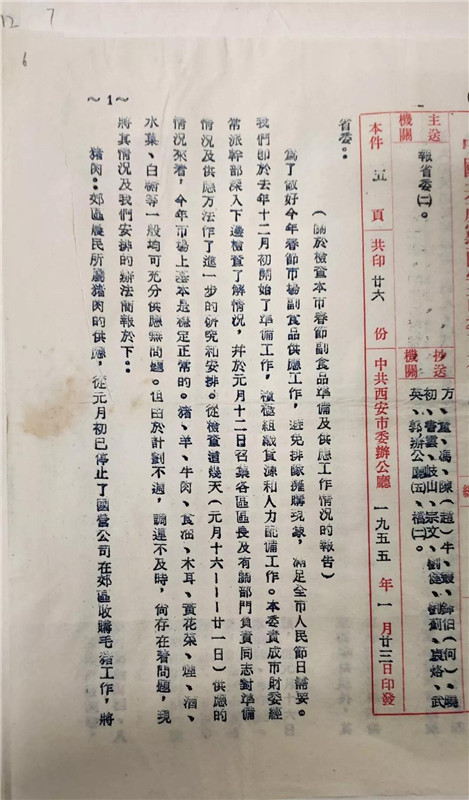 主送機關
報省委(二)。
抄送機關
方、董、馮、陳(趙)牛、嚴、
初、春雲、歧山、宗文、劉
英、郭、辦公廳(五)、檔(二)。
本件 五 頁 共印 廿六 份 中共西安市委辦公廳 一九五五 年 一 月 廿三 日印發
(關於檢查本市春節副食品準備及供應工作情況的報告)
省委:
爲了做好今年春節市場副食品供應工作,避免排隊搶購現象,滿足全市人民節日需要。
我們即於去年十二月初開始了準備工作,積極組織貨源和人力配備工作。本委責成市財委經
常派幹部深入下邊檢查了解情況,并於元月十二日召集各區區長及有關部門負責同志對準備
情況及供應方法作了進一步的研究和安排。從檢查這幾天(元月十六——廿一日)供應的
情況來看,今年市場上基本是穩定正常的。猪、羊、牛肉、食油、木耳、黃花菜、煙、酒、
水菓、白糖等一般均可充分供應無問題。但由於計劃不週,調運不及時,尚存在着問題,現
將其情況及我們安排的辦法簡報於下:
猪肉:郊區農民所屬猪肉的供應,從元月初已停止了國營公司在郊區收購毛猪工作,將
~1~
12
7
6